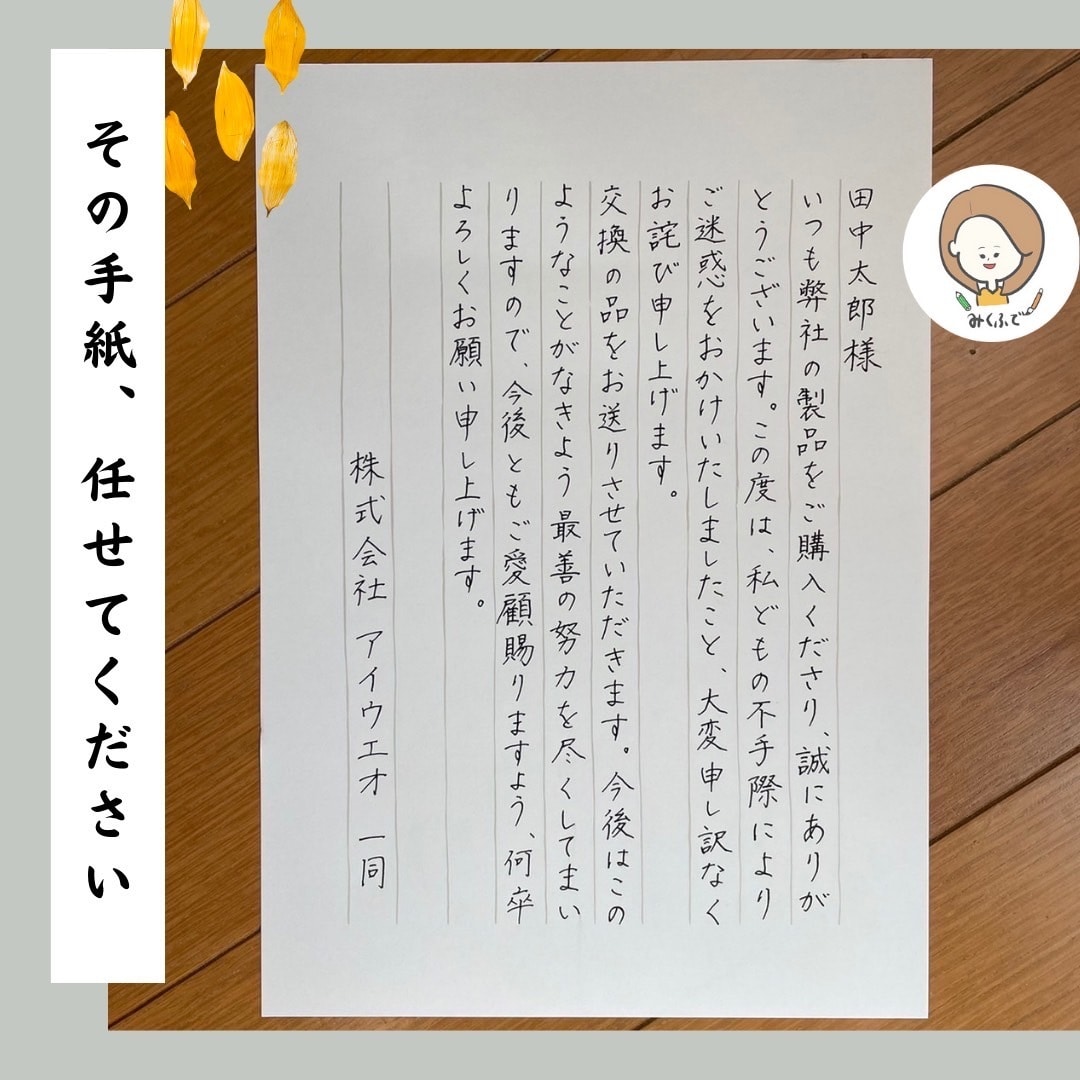 その手紙、任せてください
田中太郎様
いつも弊社の製品をご購入くださり、誠にありが
とうございます。この度は、私どもの不手際により
ご迷惑をおかけいたしましたこと、大変申し訳なく
お詫び申し上げます。
交換の品をお送りさせていただきます。今後はこの
ようなことがなきよう最善の努力を尽くしてまい
りますので、今後ともご愛顧賜りますよう、何卒
よろしくお願い申し上げます。
株式会社 アイウエオ 一同
みくふで